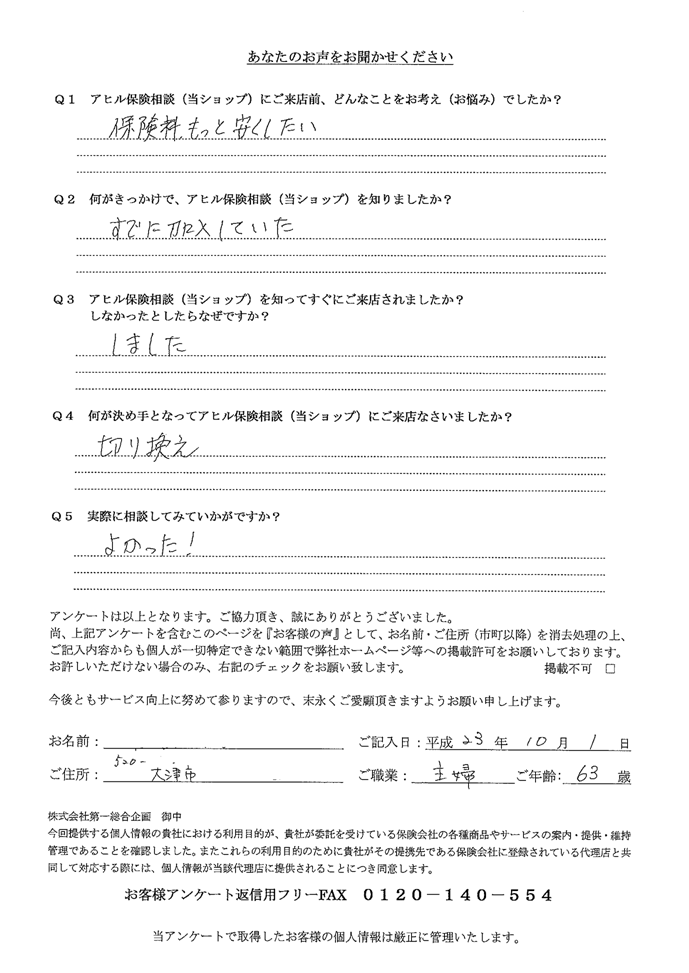 あなたのお声をお聞かせください
Q1 アヒル保険相談（当ショップ）にご来店前、どんなことをお考え（お悩み）でしたか？
保険料もっと安くしたい
Q2 何がきっかけで、アヒル保険相談（当ショップ）を知りましたか？
すでに加入していた
Q3 アヒル保険相談（当ショップ）を知ってすぐにご来店されましたか？
しなかったとしたらなぜですか？
しました
Q4 何が決め手となってアヒル保険相談（当ショップ）にご来店なさいましたか？
切り換え
Q5 実際に相談してみていかがですか？
よかった！
アンケートは以上となります。ご協力頂き、誠にありがとうございました。
尚、上記アンケートを含むこのページを『お客様の声』として、お名前・ご住所（市町以降）を消去処理の上、
ご記入内容からも個人が一切特定できない範囲で弊社ホームページ等への掲載許可をお願いしております。
お許しいただけない場合のみ、右記のチェックをお願い致します。 掲載不可 □
今後ともサービス向上に努めて参りますので、末永くご愛顧頂きますようお願い申し上げます。
お名前： ご記入日：平成 23 年 10 月 1 日
ご住所： 520- 大津市 ご職業： 主婦 ご年齢: 63 歳
株式会社第一総合企画 御中
今回提供する個人情報の貴社における利用目的が、貴社が委託を受けている保険会社の各種商品やサービスの案内・提供・維持
管理であることを確認しました。またこれらの利用目的のために貴社がその提携先である保険会社に登録されている代理店と共
同して対応する際には、個人情報が当該代理店に提供されることにつき同意します。
お客様アンケート返信用フリーFAX 0120－140－554
当アンケートで取得したお客様の個人情報は厳正に管理いたします。